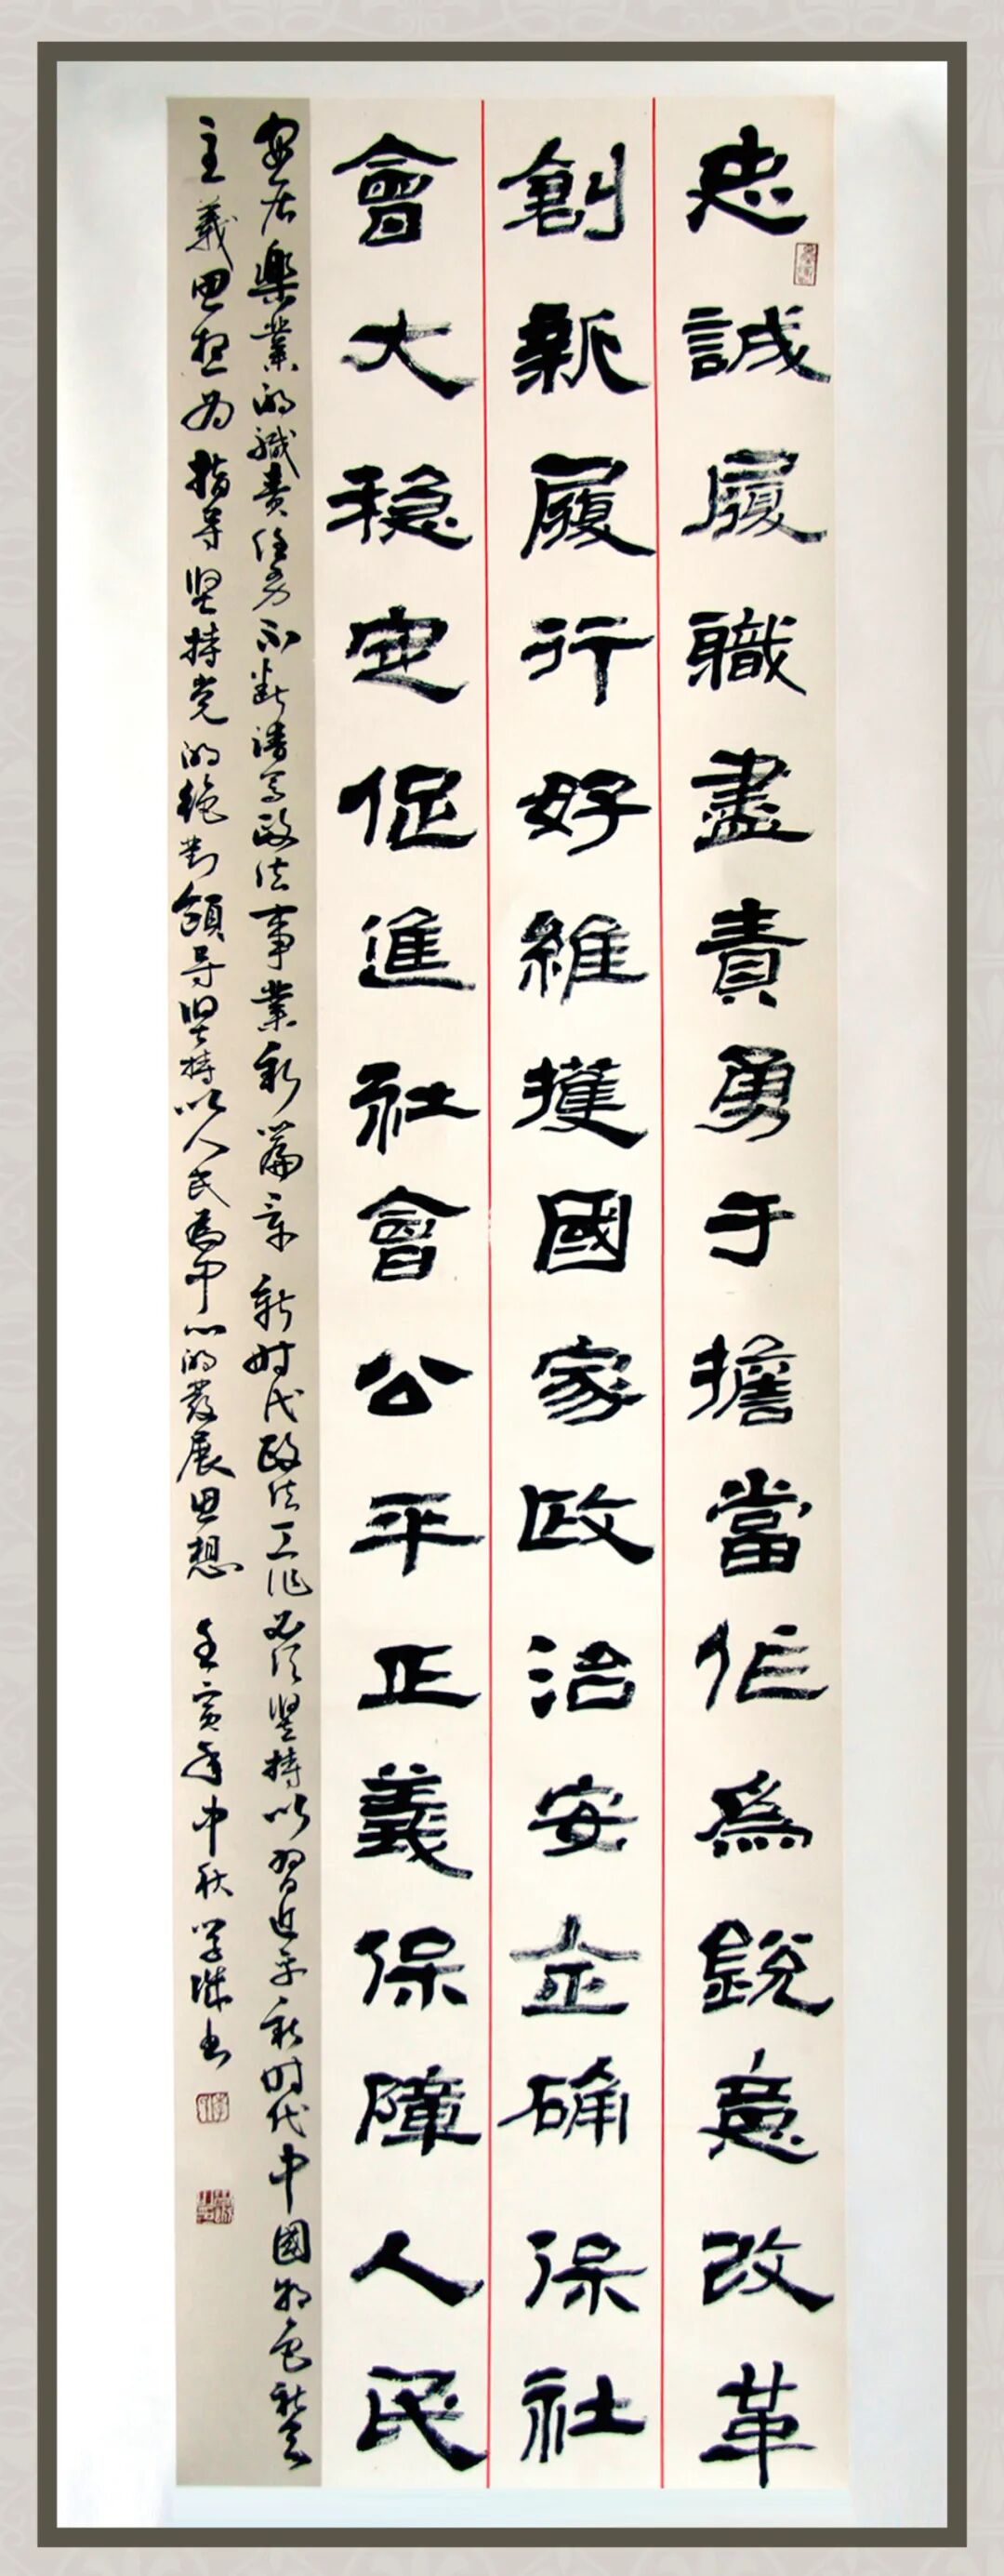 忠誠履職盡責勇于擔當作爲銳意改革
創新履行好維擭國家政治安全確保社
會大稳定促進社會公平正義保障人民
安居樂業的職責任务不断谱写政法事業新篇章 新时代政法工作必须坚持以习近平新时代中國特色社会
主義思想为指导坚持党的绝對領导坚持以人民為中心的发展思想 壬寅年中秋学斌书